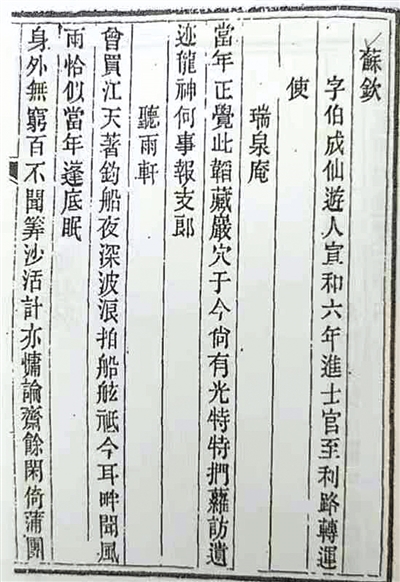 蘇欽
字伯成仙遊人宣和六年進士官至利路轉運
使
瑞泉庵
當年正覺此韜藏巖穴于今尙有光特特捫蘿訪遺
迹龍神何事報支郎
聽雨軒
曾買江天著釣船夜深波浪拍船舷祗今耳畔聞風
雨恰似當年蓬底眠
身外無窮百不聞筭沙活計亦慵論齋餘閑倚蒲團